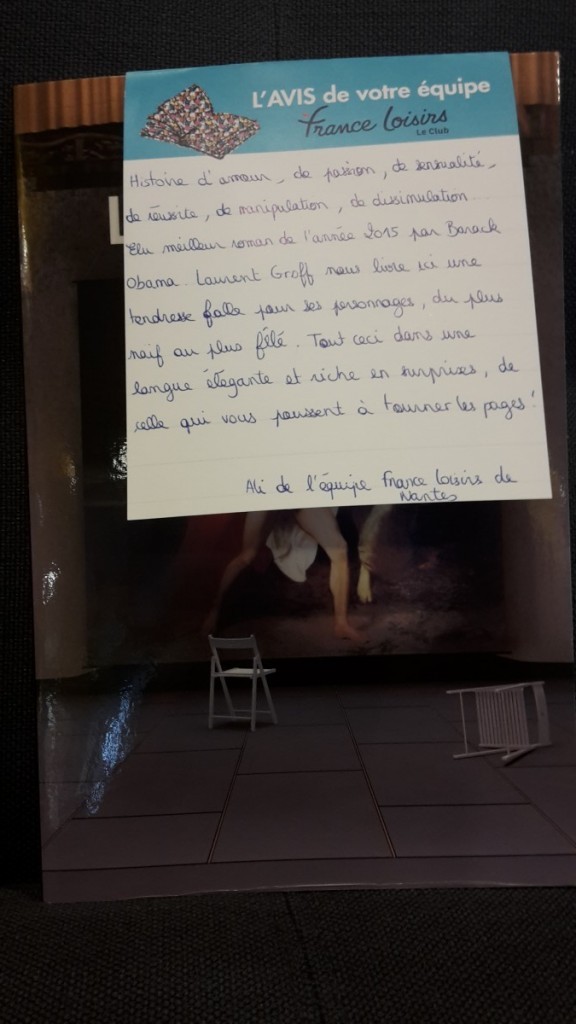 L'AVIS de votre équipe
France Loisirs
Le Club
Histoire d'amour, de passion, de sensualité,
de réussite, de manipulation, de dissimulation...
Elu meilleur roman de l'année 2015 par Barack
Obama. Laurent Groff nous livre ici une
tendresse folle pour ses personnages, du plus
naïf au plus fêlé. Tout ceci dans une
langue élégante et riche en surprises, de
celle qui vous poussent à tourner les pages !
Ali de l'équipe France Loisirs de
Nantes
L